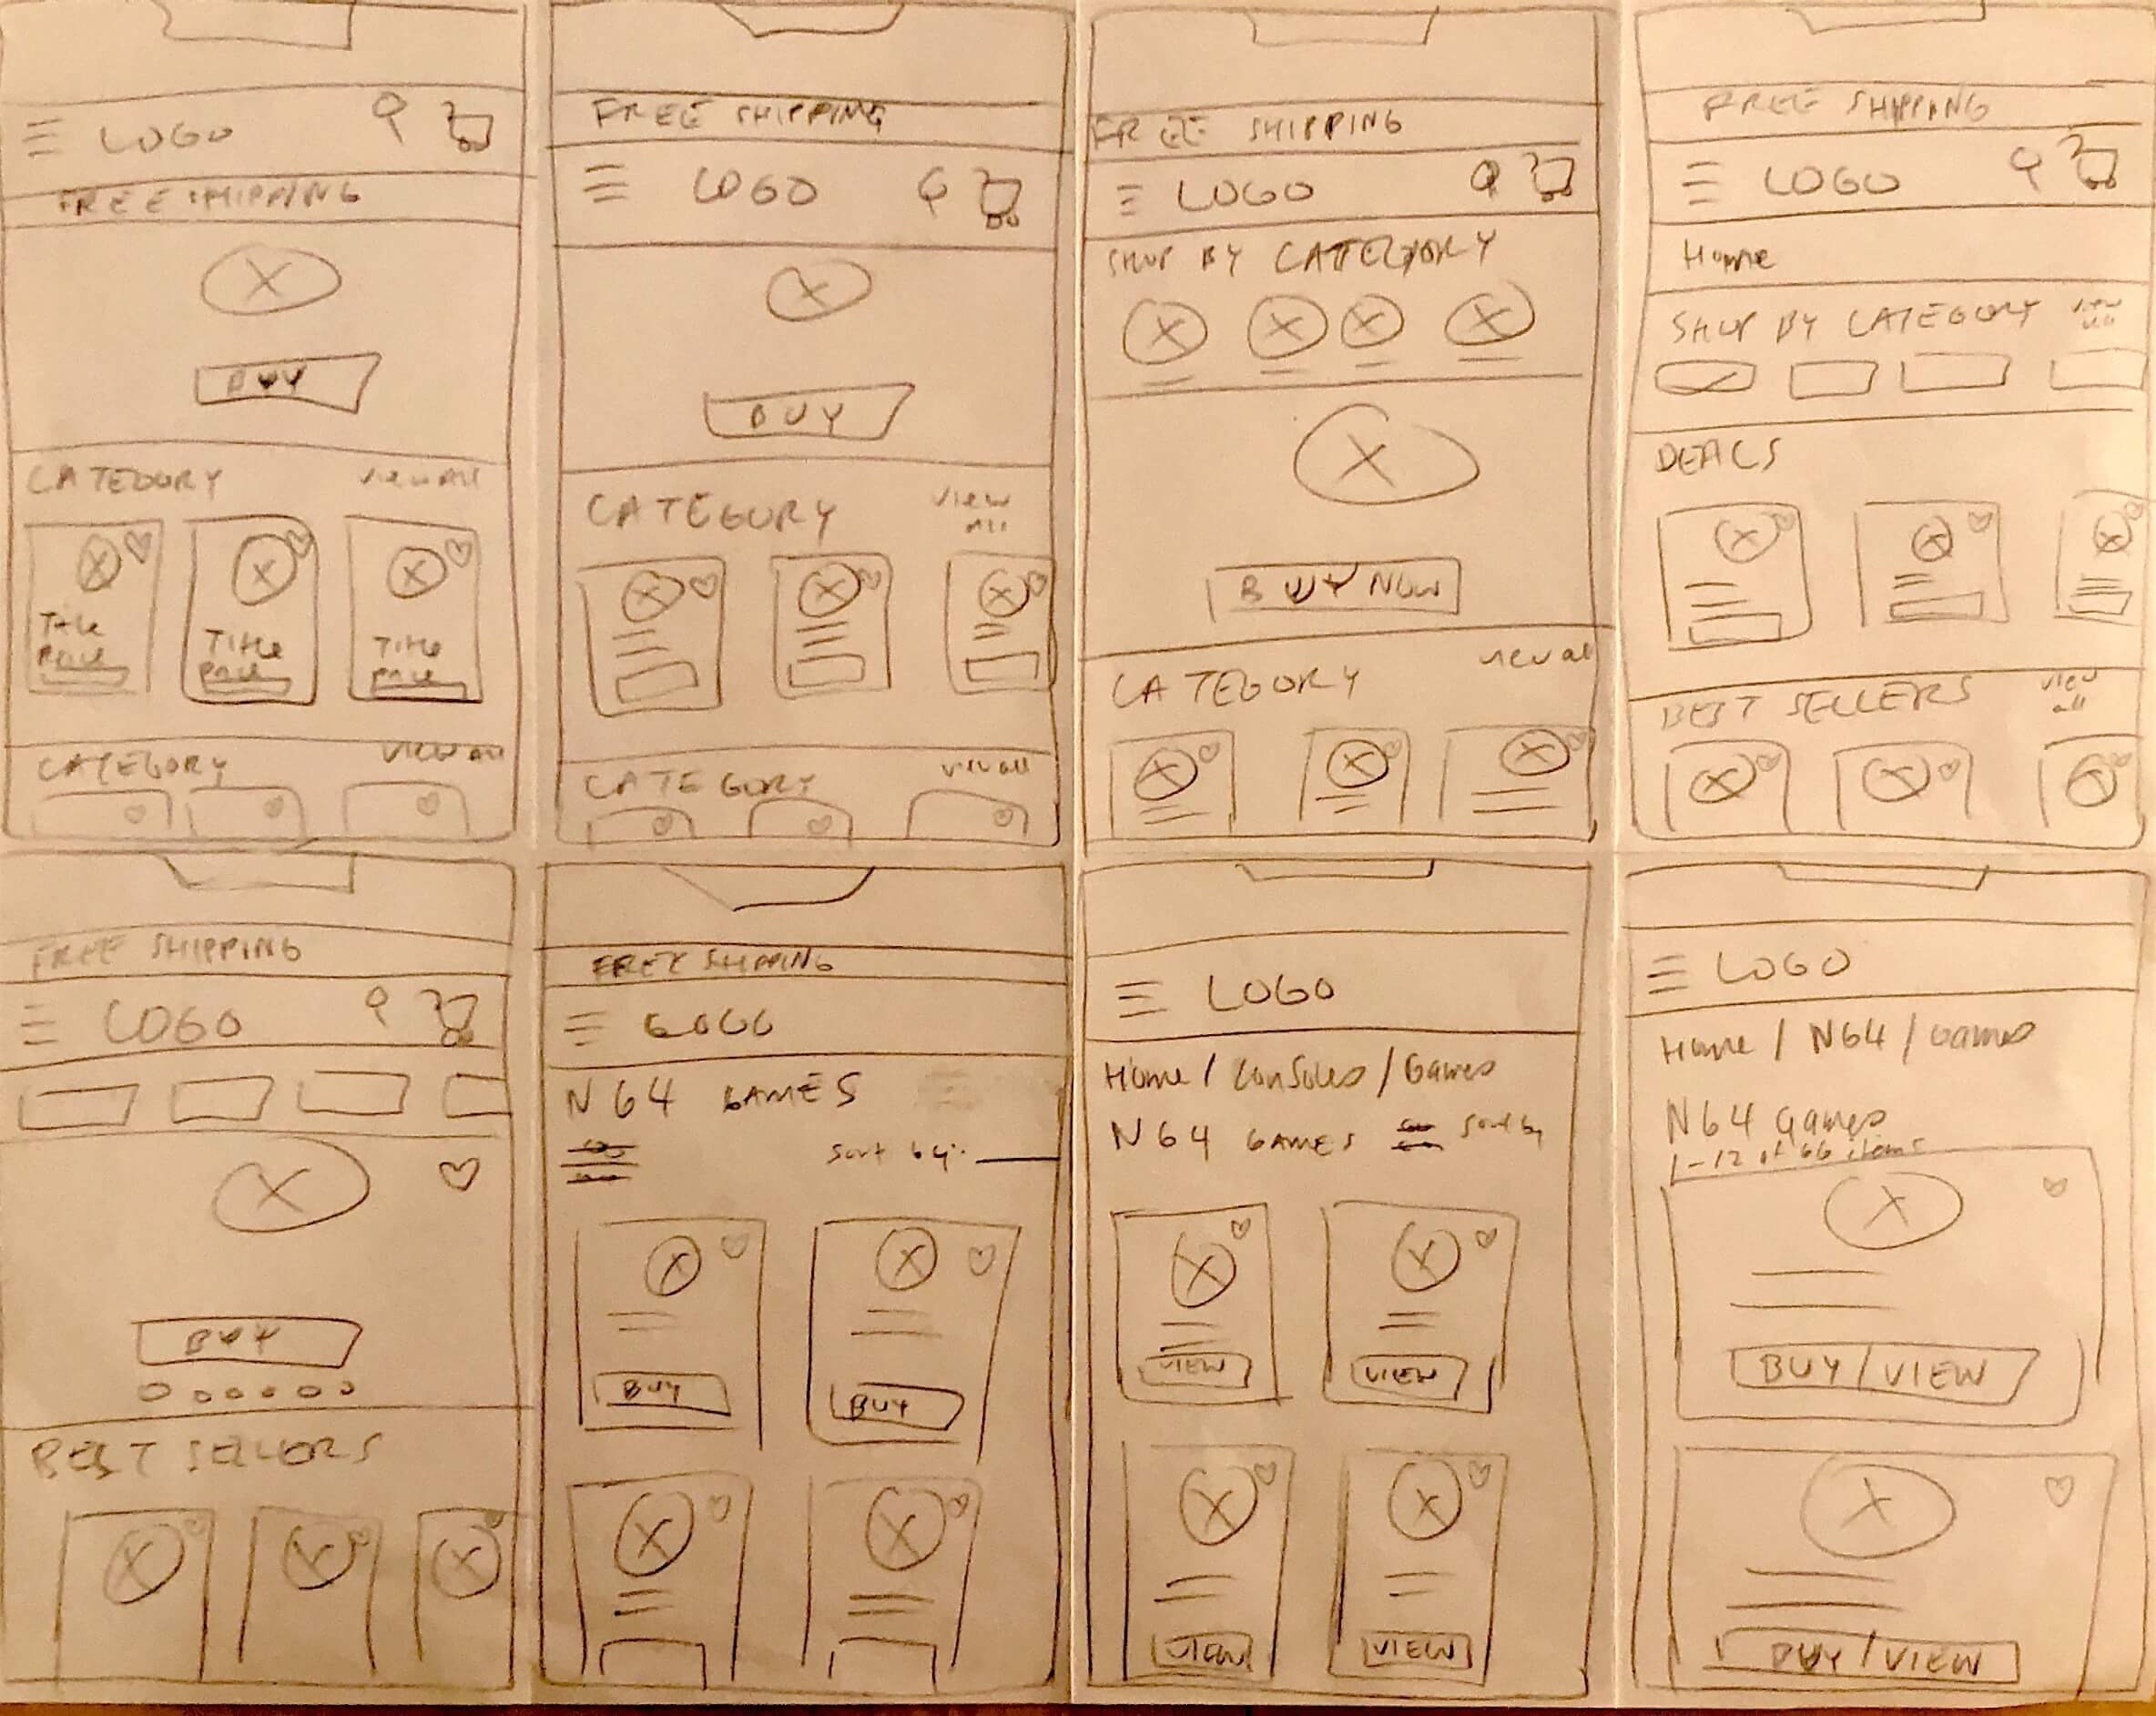 LOGO
FREE SHIPPING
BUY
CATEGORY view All
Title Title Title
Price Price Price
CATEGORY VIEW All
FREE SHIPPING
LOGO
BUY
CATEGORY VIEW
All
CATEGORY view all
FREE SHIPPING
LOGO
SHOP BY CATEGORY
BUY NOW
CATEGORY view all
FREE SHIPPING
LOGO
Home
SHOP BY CATEGORY view
all
DEALS
BEST SELLERS view
all
FREE SHIPPING
LOGO
BUY
BEST SELLERS
FREE SHIPPING
LOGO
N64 GAMES
Sort by:
BUY BUY
LOGO
Home / Consoles / Games
N64 GAMES Sort by
VIEW VIEW
VIEW VIEW
LOGO
Home / N64 / Games
N64 Games
1-12 of 66 items
BUY / VIEW
BUY / VIEW